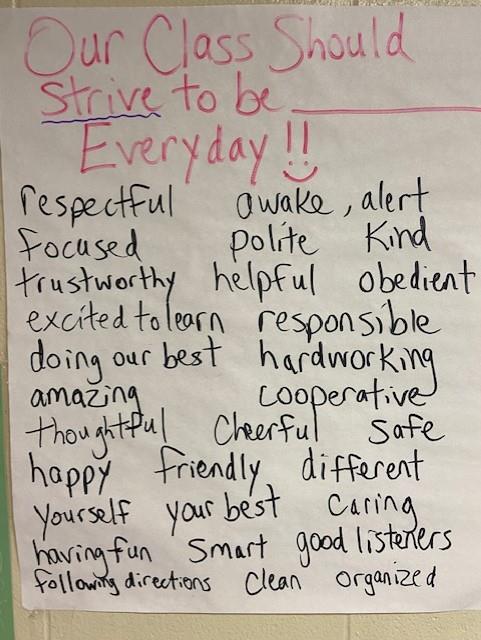 Our Class Should
Strive to be ________
Everyday!!
respectful awake, alert
focused polite Kind
trustworthy helpful obedient
excited to learn responsible
doing our best hardworking
amazing cooperative
thoughtful Cheerful Safe
happy friendly different
yourself your best Caring
having fun Smart good listeners
following directions Clean organized